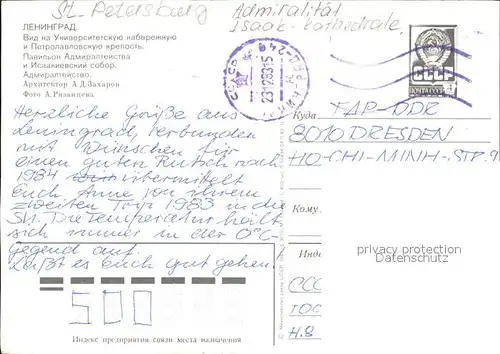 St. Petersburg
Admiralität
Isaak-Kathedrale
ЛЕНИНГРАД.
Вид на Университетскую набережную
и Петропавловскую крепость.
Павильон Адмиралтейства
и Исаакиевский собор.
Адмиралтейство.
Архитектор А.Д.Захаров
Фото А.Рязанцева
Herzliche Grüße aus
Leningrad, verbunden
mit Wünschen für
einen guten Rutsch nach
1984 übermittelt
Euch Anne von ihrem
zweiten Trip 1983 in die
SU. Die Temperatur hält
sich immer in der 0°C-
gegend auf.
Laßt es euch gut gehen!
500
Индекс предприятия связи места назначения
23128315
СССР
ПОЧТА
Куда
ГДР-DDR
8010 DRESDEN
HO-CHI-MINH-STR.
Кому
Инде
ССС
ГОС
Н.8
privacy protection
Datenschutz